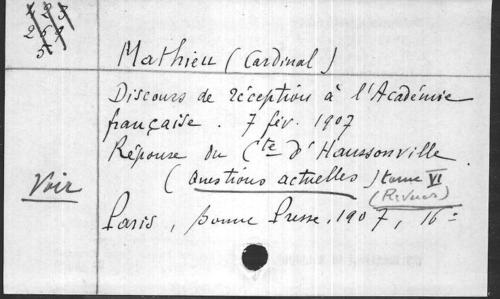 Mathieu (Cardinal)
Discours de réception à l'Académie
française. 7 fév. 1907
Réponse du Cte d'Haussonville.
Voir
(Questions actuelles) tome VI
(Revues)
Paris, bonne Presse, 1907, 16=